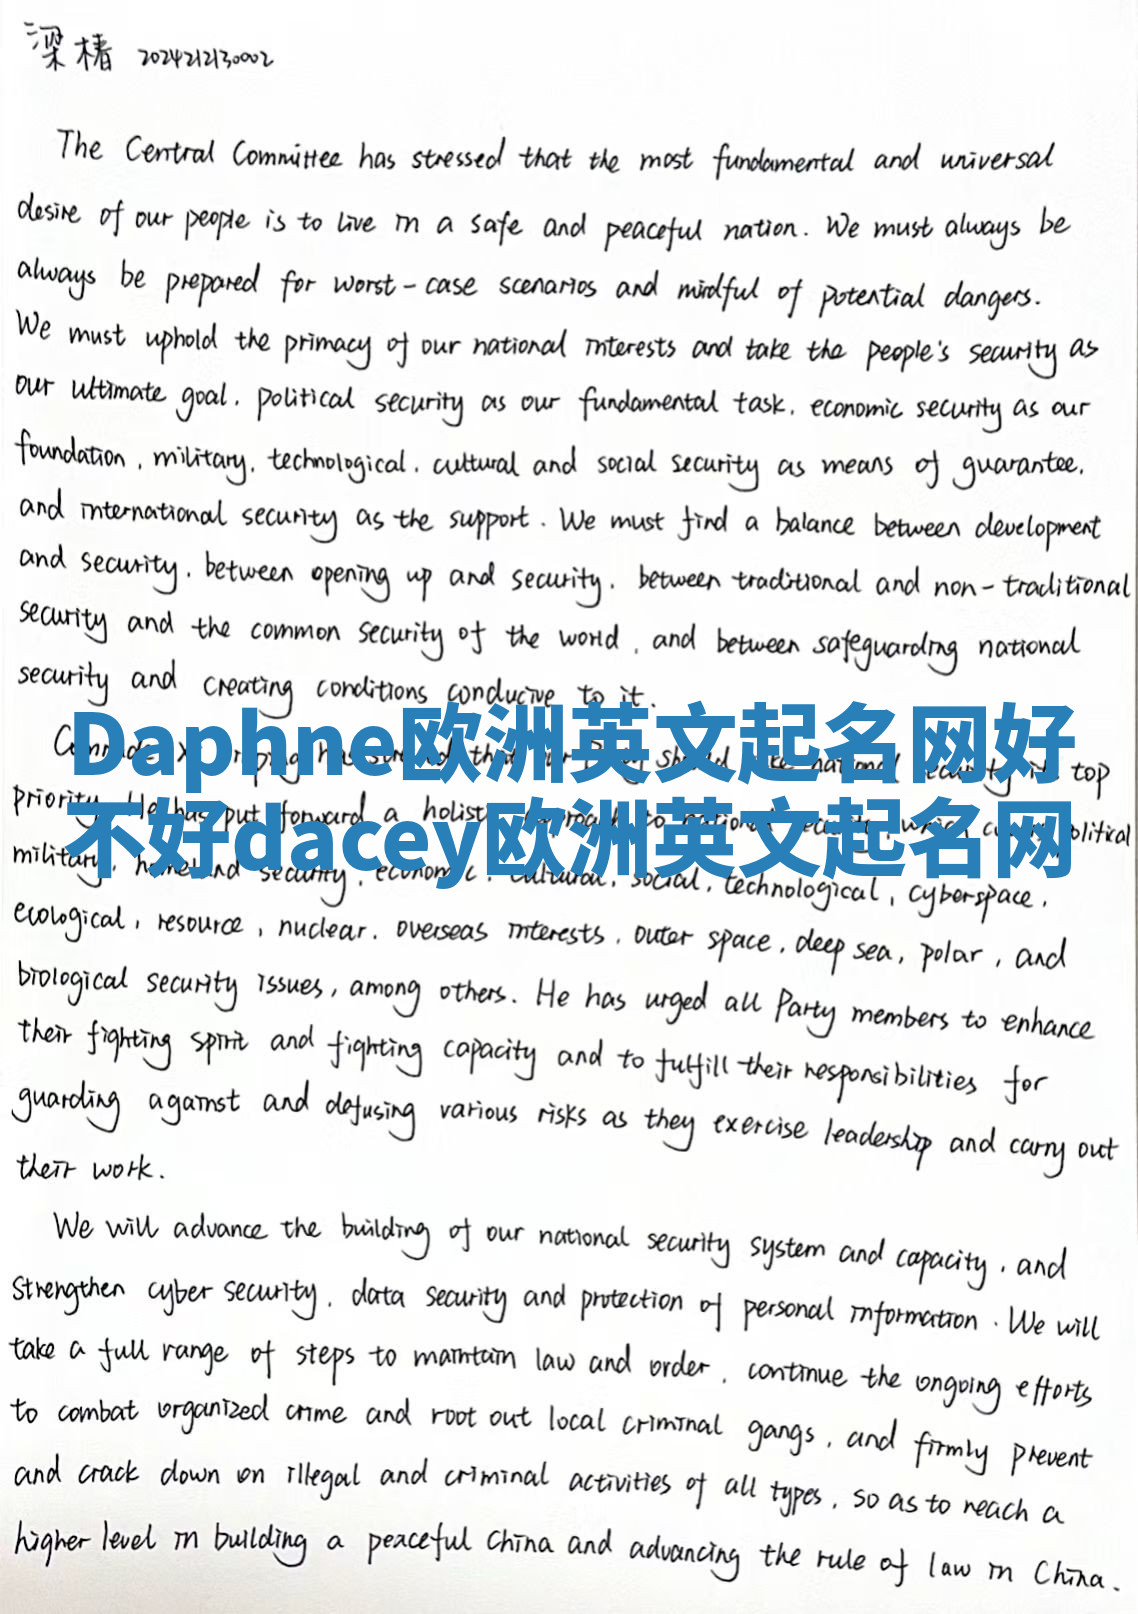 梁椿 2024212130002
The Central Committee has stressed that the most fundamental and universal
desire of our people is to live in a safe and peaceful nation. We must always be
always be prepared for worst-case scenarios and mindful of potential dangers.
We must uphold the primacy of our national interests and take the people's security as
our ultimate goal, political security as our fundamental task, economic security as our
foundation, military, technological, cultural and social security as means of guarantee,
and international security as the support. We must find a balance between development
and security, between opening up and security, between traditional and non-traditional
security and the common security of the world, and between safeguarding national
security and creating conditions conducive to it.
Daphne欧洲英文起名网好
top
priority. He has put forward a holistic
不好dacey欧洲英文起名网
military, homeland security, economic, cultural, social, technological, cyberspace,
ecological, resource, nuclear, overseas interests, outer space, deep sea, polar, and
biological security issues, among others. He has urged all Party members to enhance
their fighting spirit and fighting capacity and to fulfill their responsibilities for
guarding against and defusing various risks as they exercise leadership and carry out
their work.
We will advance the building of our national security system and capacity, and
strengthen cyber security, data security and protection of personal information. We will
take a full range of steps to maintain law and order, continue the ongoing efforts
to combat organized crime and root out local criminal gangs, and firmly prevent
and crack down on illegal and criminal activities of all types, so as to reach a
higher level in building a peaceful China and advancing the rule of law in China.